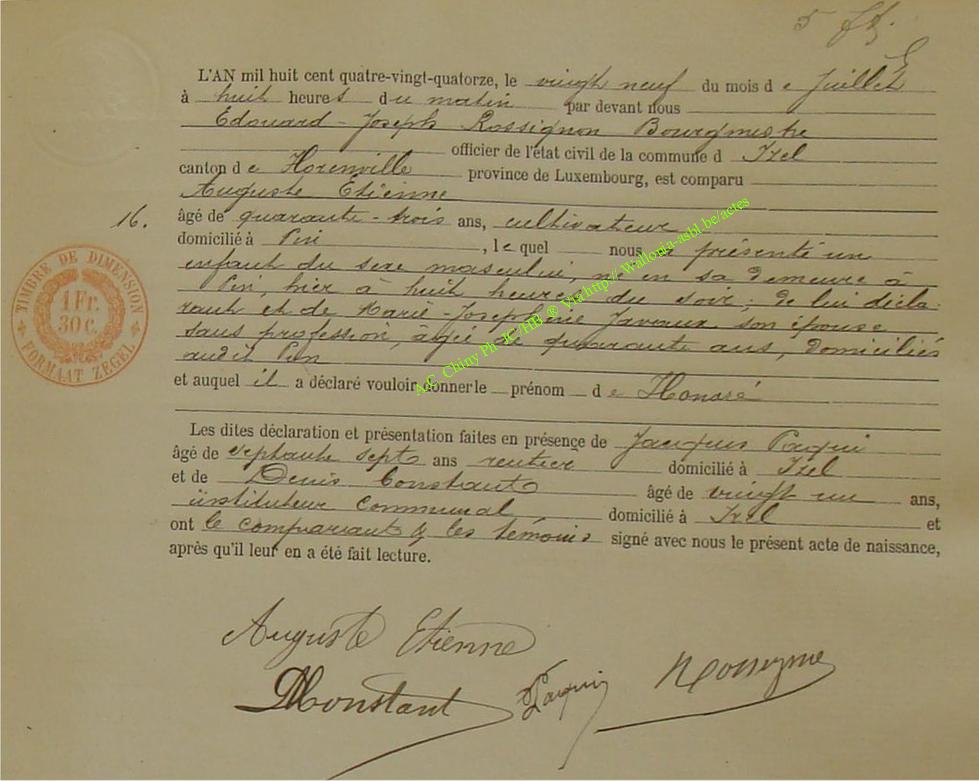 L'AN mil huit cent quatre-vingt-quatorze, le vingt neuf du mois de Juillet
à huit heures du matin par devant nous
Edouard-Joseph Rossignon Bourgmestre
officier de l'état civil de la commune d Izel
canton de Florenville province de Luxembourg, est comparu
Auguste Etienne
16.
âgé de quarante-trois ans, cultivateur
domicilié à Pin, lequel nous a présenté un
enfant du sexe masculin, né en sa demeure à
Pin, hier à huit heures du soir, de lui décla-
rant et de Marie-Josephine Javaux son épouse
sans profession, âgée de quarante ans, domiciliés
audit Pin
et auquel il a déclaré vouloir donner le prénom de Honoré
Les dites déclaration et présentation faites en présence de Jacques Paquin
âgé de septante sept ans rentier domicilié à Izel
et de Denis Constant âgé de vingt un ans,
instituteur communal domicilié à Izel et
ont le comparant & les témoins signé avec nous le présent acte de naissance,
après qu'il leur en a été fait lecture.
Auguste Etienne
DConstant Paquin Rossignon
TIMBRE DE DIMENSION
1 Fr.
30 c.
FORMAAT ZEGEL
A.C. Chiny Ph JC/HB ® Via http://Wallonia-asbl.be/actes